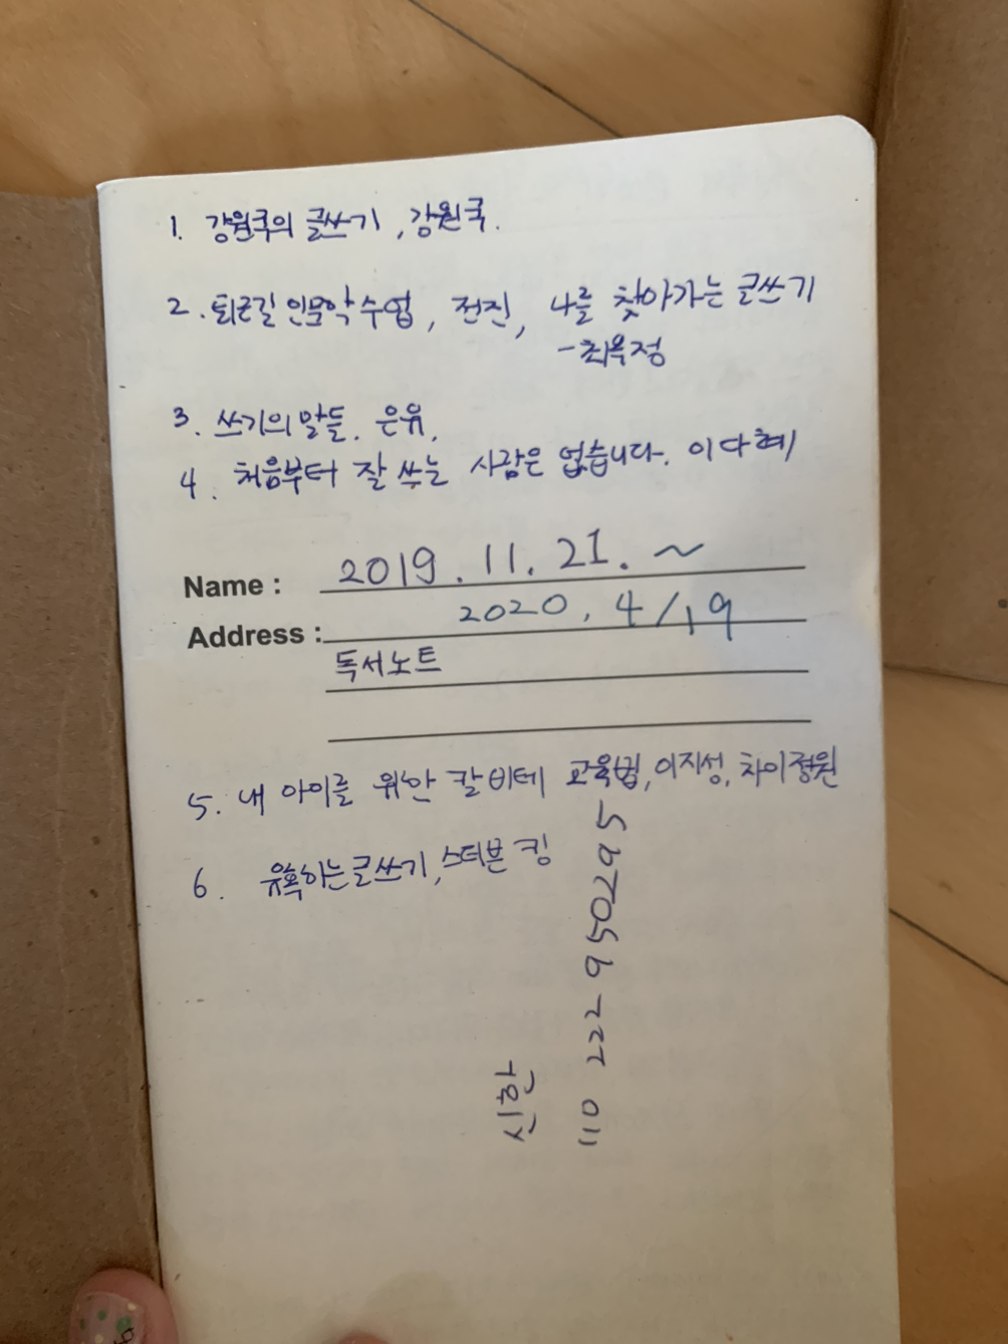 1. 강원국의 글쓰기, 강원국.
2. 퇴근길 인문학 수업, 전진, 나를 찾아가는 글쓰기
- 최옥정
3. 쓰기의 말들. 은유.
4. 처음부터 잘 쓰는 사람은 없습니다. 이다혜
Name : 2019. 11. 21. ~
Address : 2020. 4/19
독서노트
5. 내 아이를 위한 칼 비테 교육법, 이지성, 차이정원
6. 유혹하는 글쓰기, 스티븐 킹